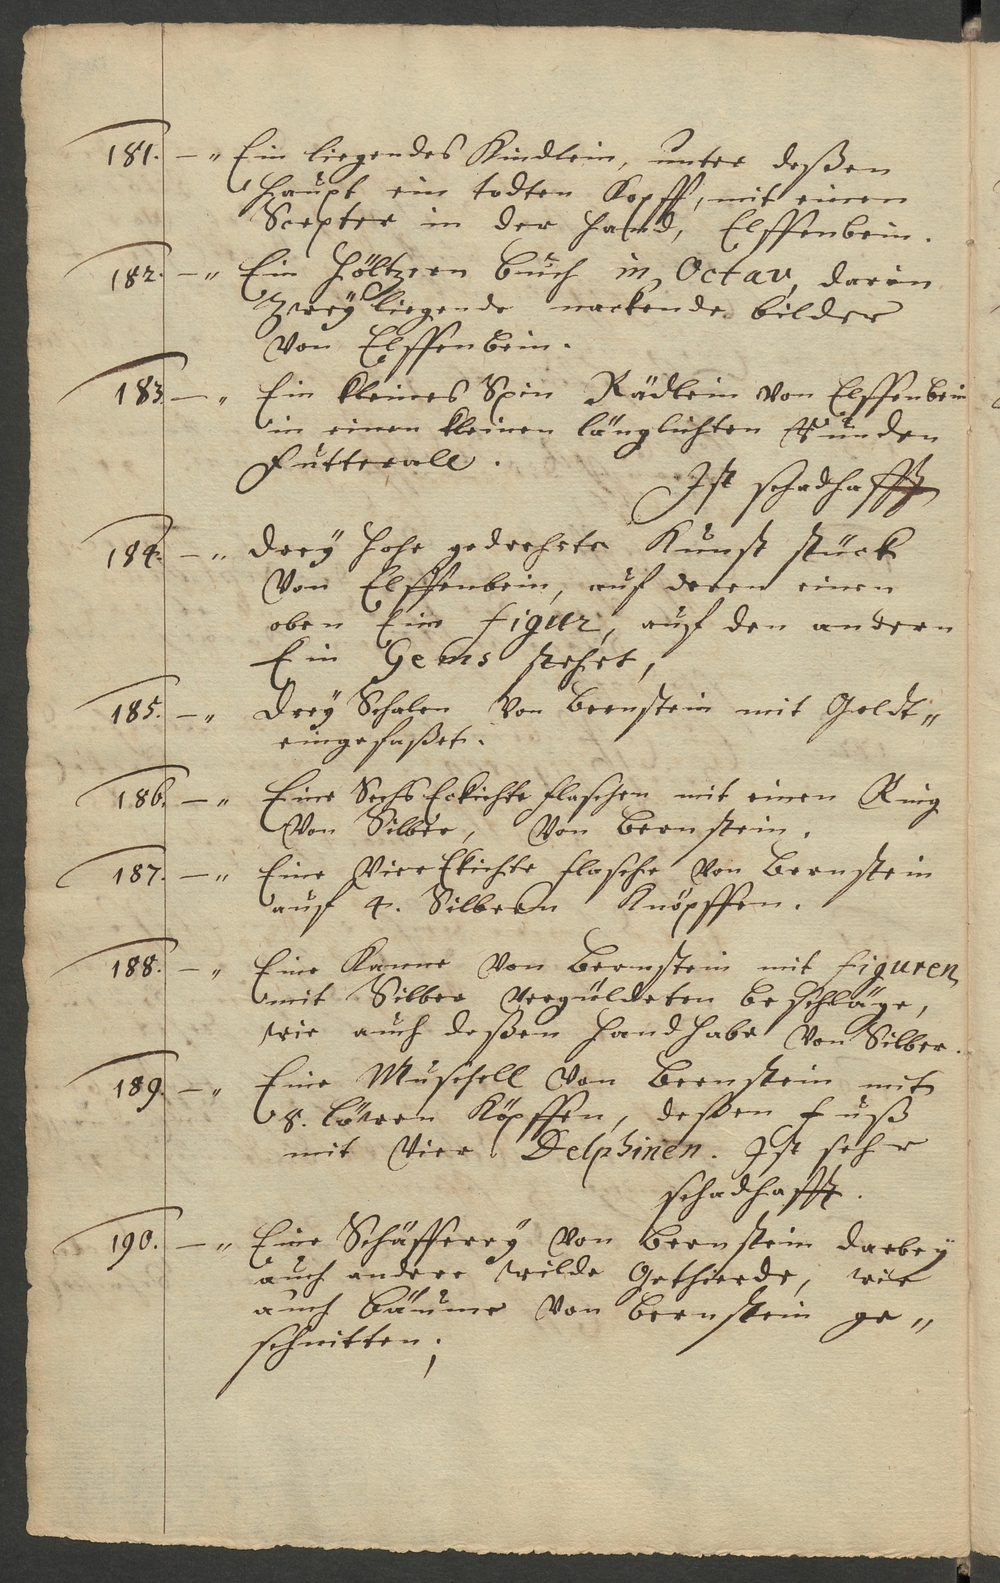 181. — „ Ein liegendes Kindlein, unter deßen
Haupt ein todten Kopff, mit einen
Scepter in der Hand, Elffenbein.
182. — „ Ein höltzern buch in Octav, darin
Zweÿ liegende nackende bilder
von Elffenbein.
183 — „ Ein kleines Spin Rädlein von Elffenbein
in einen kleinen länglichten Runden
Futterall.
Ist schadhafft
184. — „ Dreÿ hohe gedrehete Kunst stück
von Elffenbein, auf deren einen
oben Ein figur, auf den andern
Ein Gems stehet,
185. — „ Dreÿ Schalen von Bernstein mit Goldt„
eingefaßet.
186. — „ Eine Sechs Eckichte flaschen mit einen Ring
von Silber, von Bernstein.
187. — „ Eine Vier Ekichte flasche von Bernstein
auf 4. Silbern Knöpffen.
188. — „ Eine Kanne von Bernstein mit figuren
mit Silber vergüldeten beschläge,
wie auch deßen handhabe von Silber.
189. — „ Eine Muschell von Bernstein mit
8. löwen Köpffen, deßen fuß
mit Vier Delphinen. Ist sehr
schadhafft.
190. — „ Eine Schäfferey von Bernstein darbeÿ
auch andere wilde Gethierde, wie
auch bäume von Bernstein ge„
schnitten;